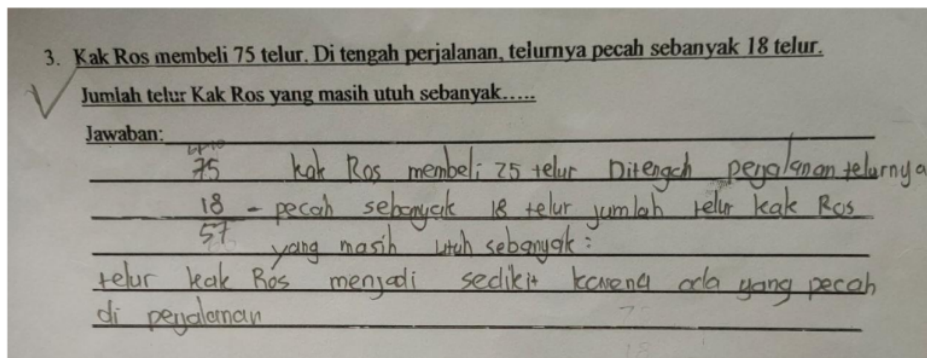 3. Kak Ros membeli 75 telur. Di tengah perjalanan, telurnya pecah sebanyak 18 telur.
Jumlah telur Kak Ros yang masih utuh sebanyak.....
Jawaban:
75 kak Ros membeli 75 telur Ditengah perjalanan telurnya
18 - pecah sebanyak 18 telur jumlah telur kak Ros
57 yang masih utuh sebanyak :
telur kak Ros menjadi sedikit karena ada yang pecah
di perjalanan